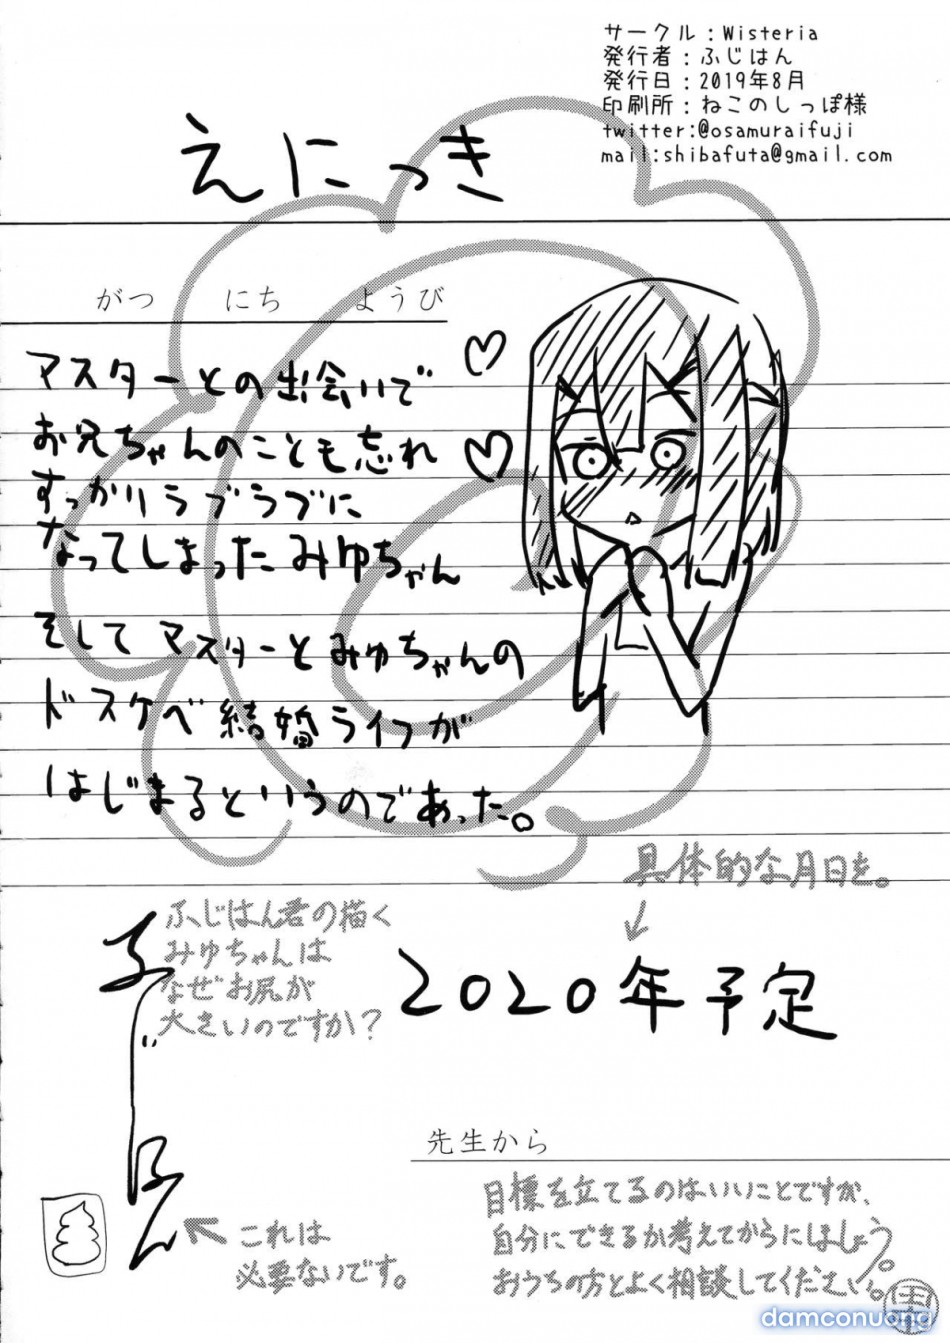 サークル：Wisteria
発行者：ふじはん
発行日：2019年8月
印刷所：ねこのしっぽ様
twitter:@osamuraifuji
mail:shibafuta@gmail.com
えにっき
がつ にち ようび
マスターとの出会いで
お兄ちゃんのことも忘れ
すっかりラブラブに
なってしまったみゆちゃん
そしてマスターとみゆちゃんの
ドスケベ結婚ライフが
はじまるというのであった。
具体的な月日を。
2020年予定
ふじはん君の描く
みゆちゃんは
なぜお尻が
大きいのですか？
ふじはん
これは
必要ないです。
先生から
目標を立てるのはいいことですが、
自分にできるか考えてからにしましょう。
おうちの方とよく相談してください。
damconuong